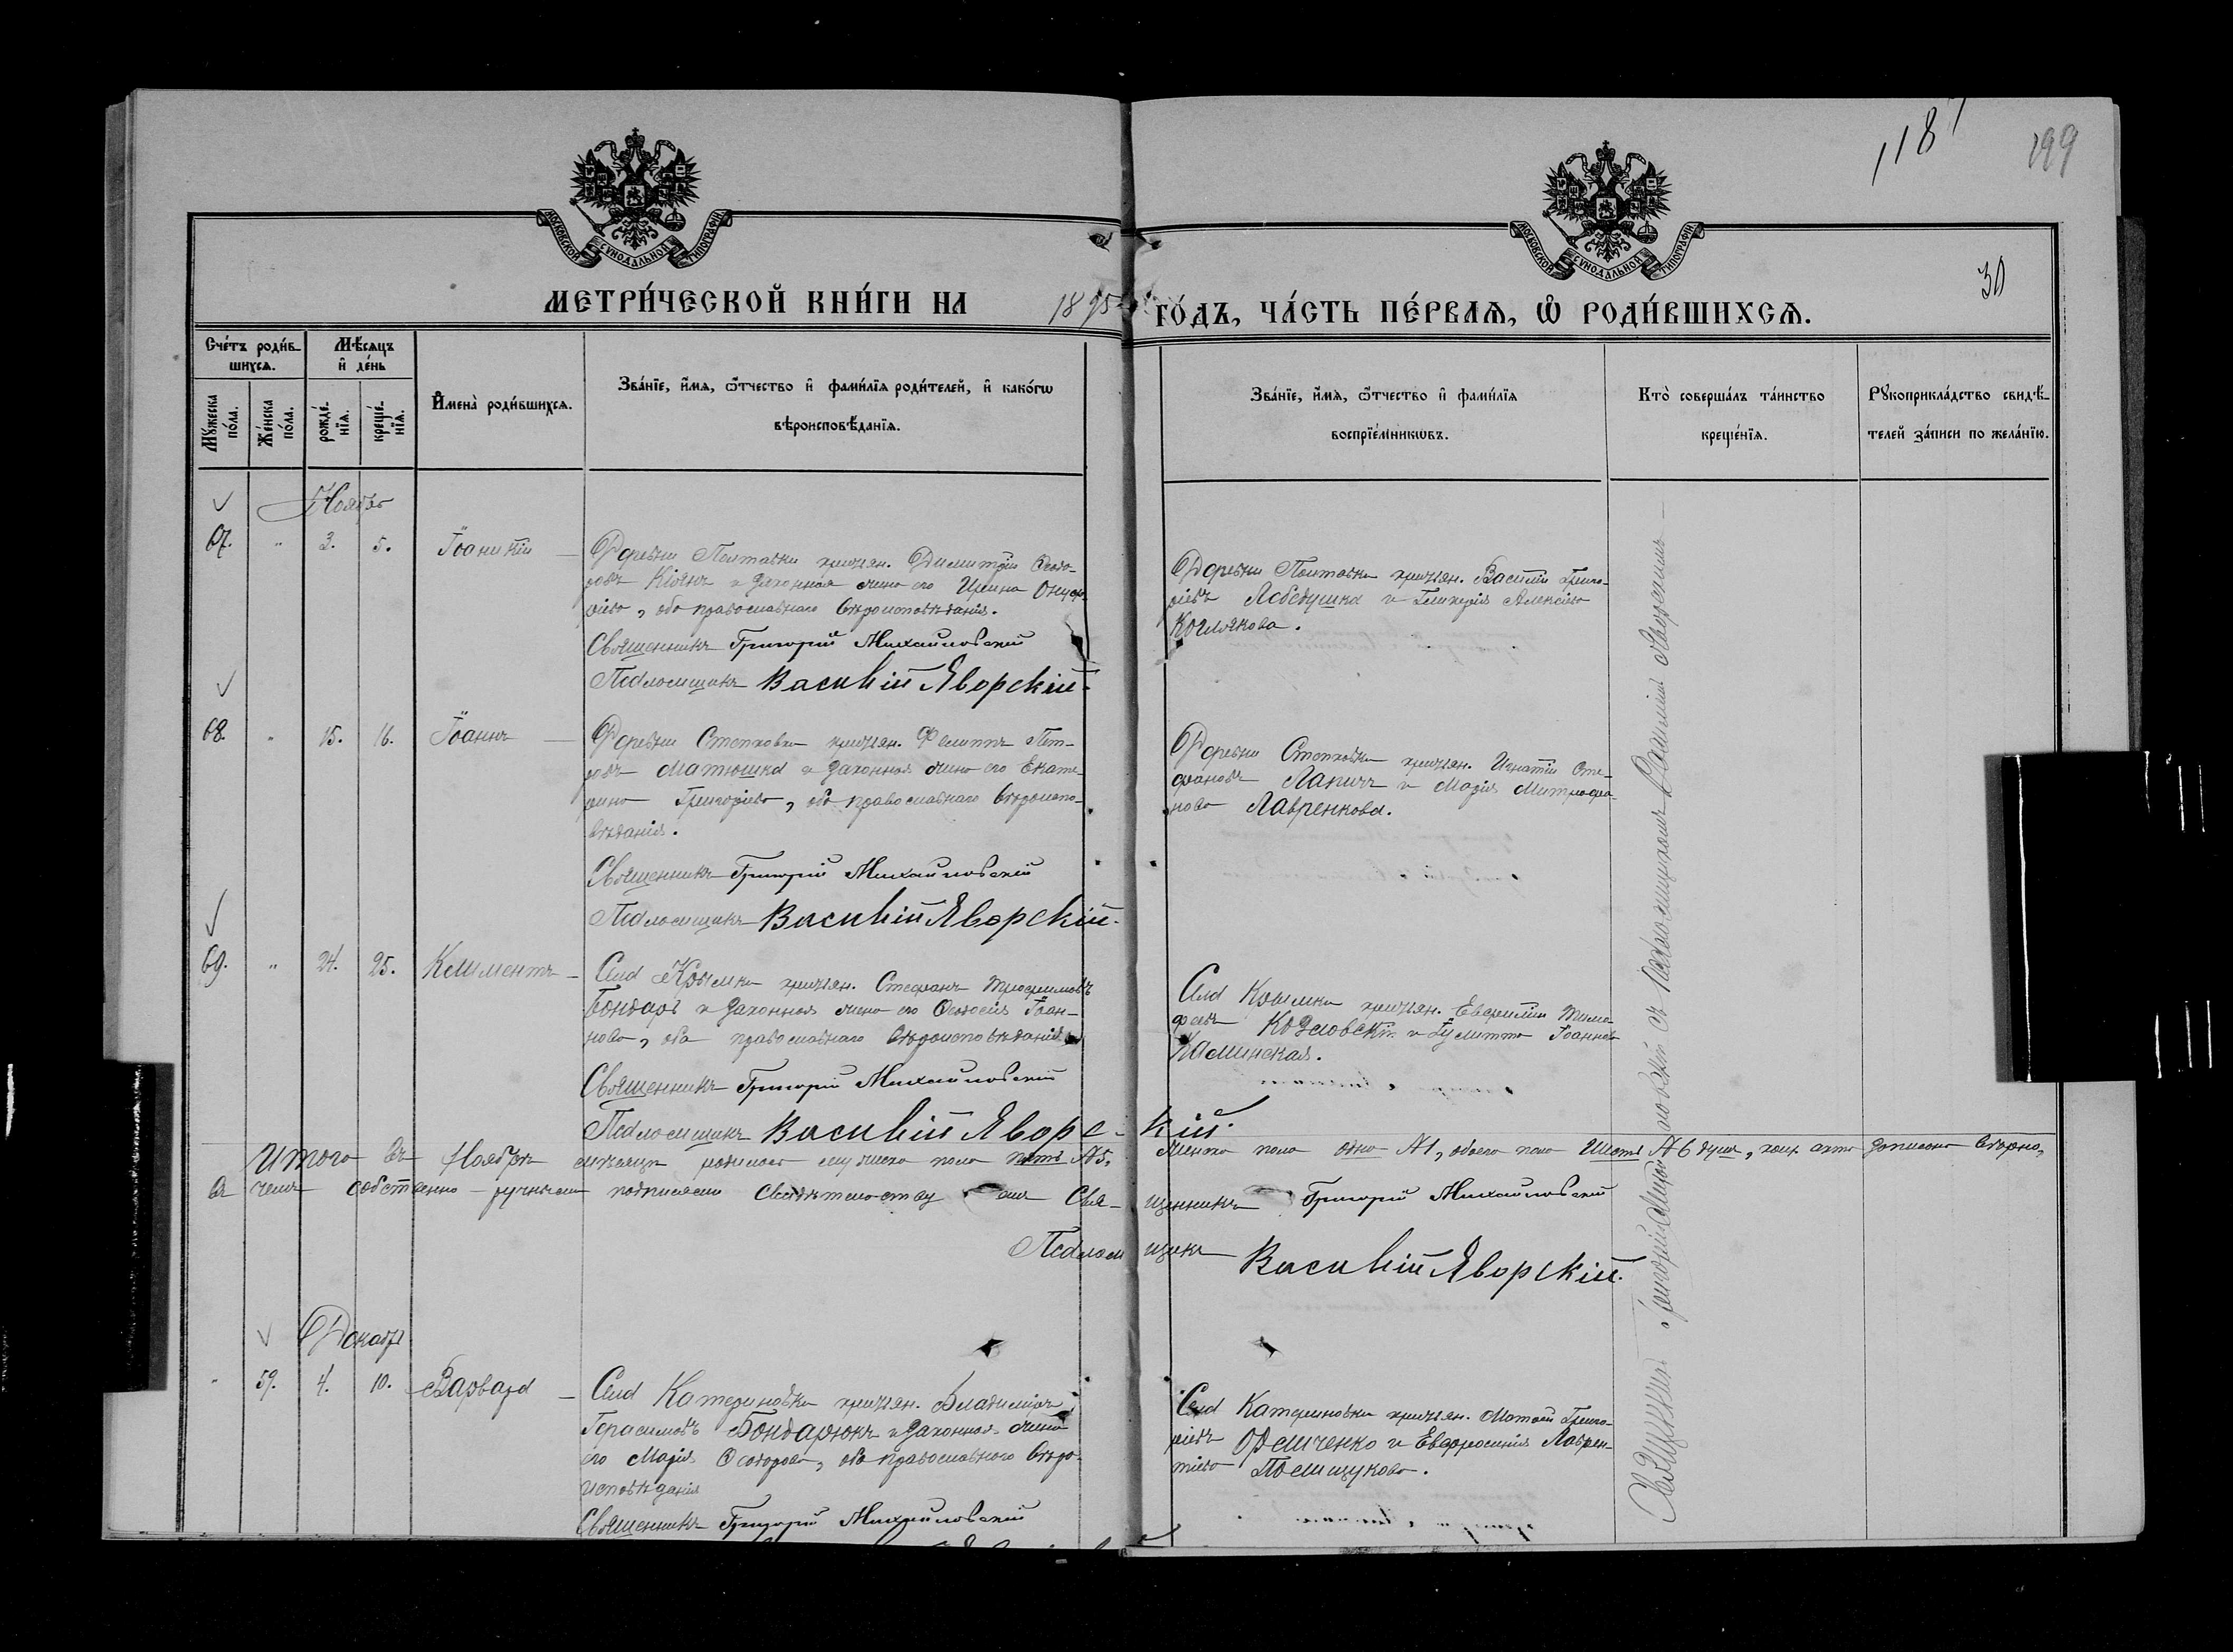 118
199
30
МОСКОВСКОЙ СѴНОДАЛЬНОЙ ТИПОГРАФІИ
МОСКОВСКОЙ СѴНОДАЛЬНОЙ ТИПОГРАФІИ
МЕТРИ́ЧЕСКОЙ КНИ́ГИ НА 1895 ГО́ДЪ, ЧА́СТЬ ПЕ́РВАѦ, Ѡ РОДИ́ВШИХСѦ.
Сче́тъ роди́в-
шихсѧ.
Мѣ́сяцъ
и҆ де́нь
Мꙋжеска по́ла.
Же́нска по́ла.
рожде́-
нїѧ.
креще́-
нїѧ.
И҆мена̀ роди́вшихсѧ.
Зва́нїе, и҆́мѧ, ѻ҆́тчество и҆ фами́лїѧ роди́телей, и҆ како́гѡ
вѣроисповѣ́данїѧ.
Зва́нїе, и҆́мѧ, ѻ҆́тчество и҆ фами́лїѧ
воспрїе́мникѡвъ.
Кто̀ соверша́лъ та́инство
креще́нїѧ.
Рꙋкоприкла́дство свидѣ́-
телей за́писи по жела́нїю.
Ноябрь
67. " 3. 5. Іоаникій
Деревни Полтавки крестьян. Димитрій Ѳеодо-
ровъ Кіянъ и законная жена его Ирина Онуф-
ріева, оба православнаго вѣроисповѣданія.
Священникъ Григорій Михайловскій
Псаломщикъ Василій Яворскій.
Деревни Полтавки крестьян. Василій Григо-
ріевъ Лебедушка и Гликерія Алексѣева
68. " 15. 16. Іоаннъ
Деревни Степковки крестьян. Филиппъ Пет-
ровъ Матюшка и законная жена его Екате-
рина Григоріева, оба православнаго вѣроиспо-
вѣданія.
Священникъ Григорій Михайловскій
Псаломщикъ Василій Яворскій.
Деревни Степковки крестьян. Игнатій Сте-
фановъ Лапичъ и Марія Митрофа-
нова Лавренкова.
69. " 24. 25. Климентъ
Села Крымки крестьян. Стефанъ Трофимовъ
Бондарь и законная жена его Ѳеодосія Іоан-
нова, оба православнаго вѣроисповѣданія.
Священникъ Григорій Михайловскій
Псаломщикъ Василій Яворскій.
Села Крымки крестьян. Евфимій Тимо-
феевъ Козловскій и Іулитта Іоаннова
Калинская.
Итого въ Ноябрѣ мѣсяцѣ родилось мужеска пола пять № 5, женска пола одна № 1, обоего пола шесть № 6 душ, коих акты записаны вѣрно,
въ чемъ собственно-ручнымъ подписомъ свидѣтельствуемъ Священникъ Григорій Михайловскій
Псаломщикъ Василій Яворскій.
Декабрь
" 59. 4. 10. Варвара
Села Катериновки крестьян. Владиміръ
Герасимовъ Бондарюкъ и законная жена
его Марія Ѳеодорова, оба православнаго вѣро-
исповѣданія
Священникъ Григорій Михайловскій
Села Катериновки крестьян. Матѳей Григо-
ріевъ и Евфросинія Лаврен-
тіева Полищукова.
Священникъ Григорій Михайловскій съ псаломщикомъ Василіемъ Яворскимъ